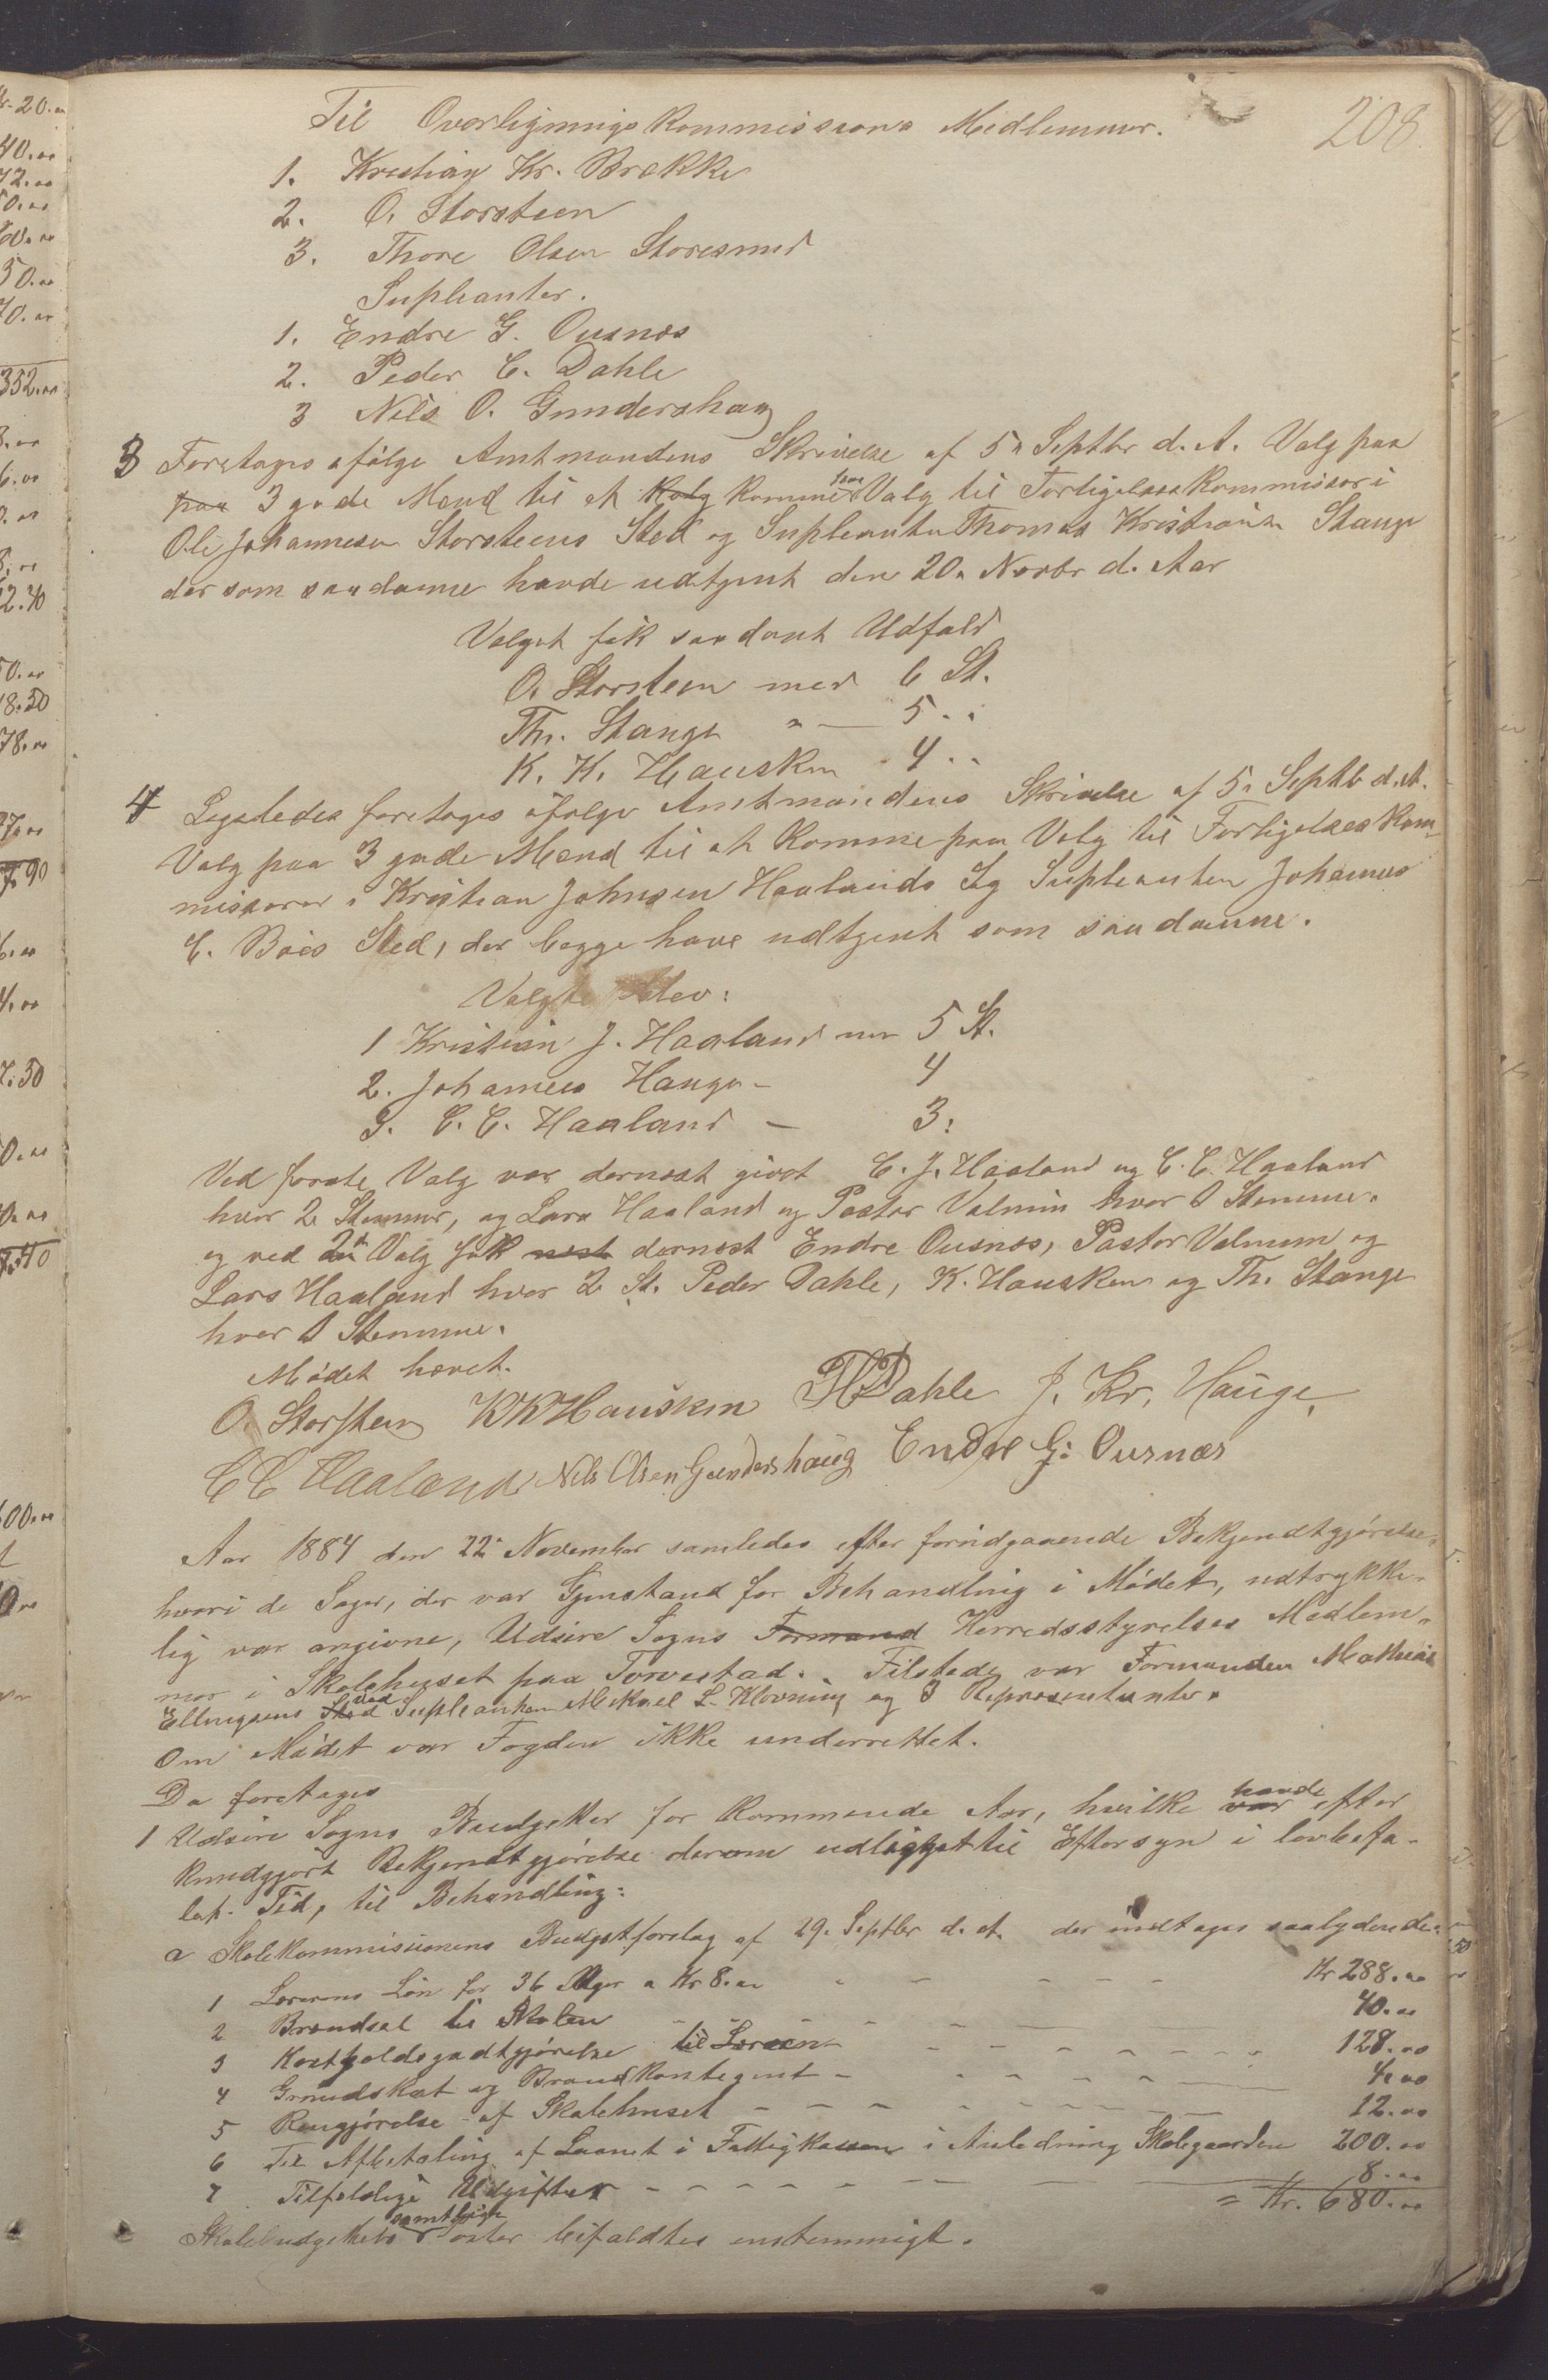 208
Til Overligningskommissions Medlemmer.
1. Kristian Kr. Brekke
2. O. Storsteen
3. Thore Olsen Storesund
Supleanter.
1. Endre G. Ousnes
2. Peder C. Dahle
3 Nils O. Gundershaug
3 Foretages ifølge Amtmandens Skrivelse af 5n Septbr d. A. Valg paa
paa 3 gode Mænd til at Valg komme paa Valg til Forligelseskommissær i
Ole Johannesen Storsteens Sted og Supleanten Thomas Kristiansen Stange
der som saadanne havde udtjent den 20n Novbr d. Aar
Valget fik saadant Udfald
O. Storsteen med 6 St.
Th. Stange " — 5 . .
K. K. Hausken 4 . .
4 Ligeledes foretages ifølge Amtmandens Skrivelse af 5n Septb d. A.
Valg paa 3 gode Mænd til at komme paa Valg til Forligelseskom-
missærer i Kristian Johnsen Haalands og Supleanten Johannes
C. Bøes Sted, der begge have udtjent som saadanne.
Valgte blev:
1 Kristian J. Haaland med 5 St.
2. Johannes Hauge - 4
3. C. C. Haaland - 3:
Ved første Valg var dernæst givet C. J. Haaland og C. C. Haaland
hver 2 Stemmer, og Lars Haaland og Pastor Valmin hver 1 Stemme.
og ved 2n Valg fik næst dernæst Endre Ousnes, Pastor Valmin og
Lars Haaland hver 2 St. Peder Dahle, K. Hausken og Th. Stange
hver 1 Stemme.
Mødet hævet.
O. Storsteen KKHausken Dahle J. Kr. Hauge,
CC Haaland Nils Olsen Gundershaug Endre G: Ousnæs
Aar 1884 den 22n November samledes efter forudgaaende Bekjendtgjørelse,
hvori de Sager, der var Gjenstand for Behandling i Mødet, udtrykke-
lig var angivne, Udsire Sogns Formand Herredsstyrelses Medlem-
mer i Skolehuset paa Torvestad. Tilstede var Formanden Mathias
Ellingsens Sted ved Supleanten Mikael L. Klovning og 3 Repræsentanter.
Om Mødet var Fogden ikke underrettet.
Da foretages
1 Udsire Sogns Budgetter for kommende Aar, hvilke var havde efter
kundgjort Bekjendtgjørelse derom udligget til Eftersyn i lovbefa-
let Tid, til Behandling:
a Skolekommissionens Budgetforslag af 29. Septbr d. A. der indtages saalydende:
1 Lærerens Løn for 36 Uger a Kr 8.00 Kr 288.00
2 Brændsel til Skolen 40.00
3 Kostholdsgodtgjørelse til Læreren 128.00
4 Grundskat og Brandkontegent 4.00
5 Rengjørelse af Skolehuset 12.00
6 Til Afbetaling af Laanet i Fattigkassen i Anledning Skolegaarden 200.00
7 Tilfældige Udgifter 8.00
= Kr. 680.00
Skolebudgettets samtlige Poster bifaldtes enstemmigt.